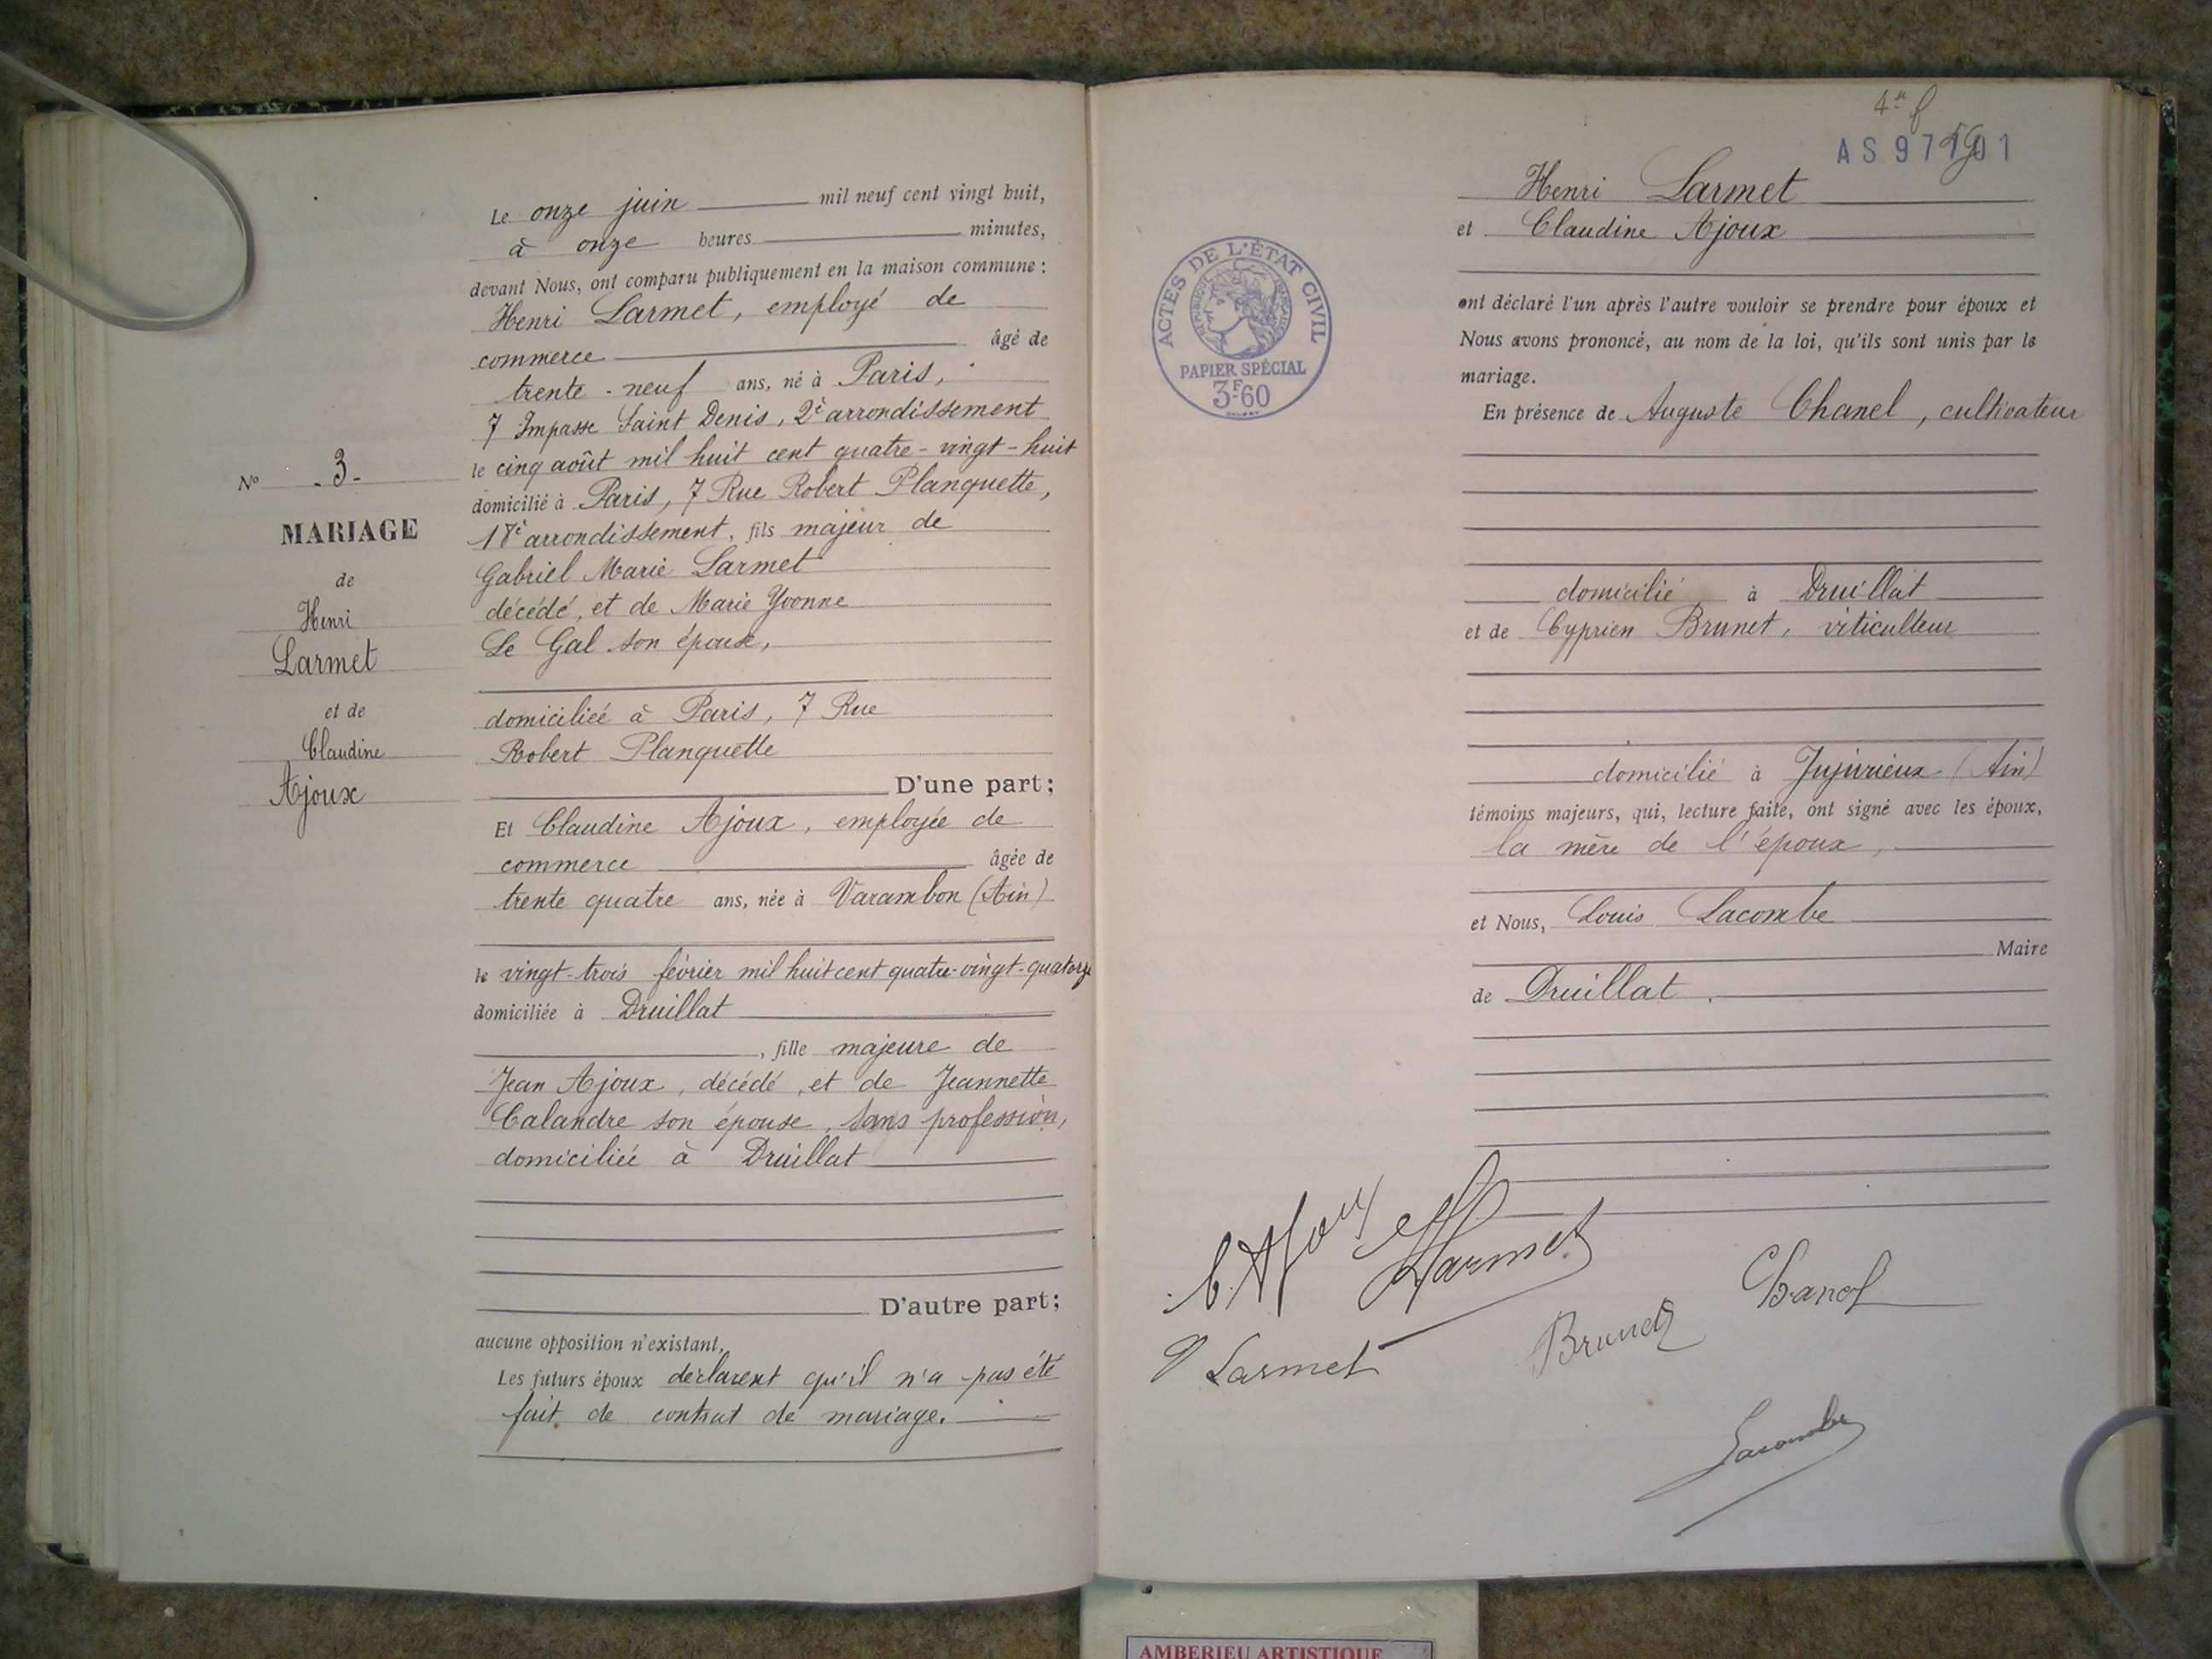 Le onze juin mil neuf cent vingt huit,
à onze heures minutes,
devant Nous, ont comparu publiquement en la maison commune :
Henri Larmet, employé de
commerce âgé de
trente-neuf ans, né à Paris,
7 Impasse Saint Denis, 2è arrondissement
le cinq août mil huit cent quatre-vingt-huit
domicilié à Paris, 7 Rue Robert Planquette,
18è arrondissement, fils majeur de
Gabriel Marie Larmet
décédé, et de Marie Yvonne
Le Gal son épouse,
domiciliée à Paris, 7 Rue
Robert Planquette
D'une part;
Et Claudine Ajoux, employée de
commerce âgée de
trente quatre ans, née à Varambon (Ain)
le vingt-trois février mil huit cent quatre-vingt-quatorze
domiciliée à Druillat
, fille majeure de
Jean Ajoux, décédé, et de Jeannette
Calandre son épouse, sans profession,
domiciliée à Druillat
D'autre part;
aucune opposition n'existant,
Les futurs époux déclarent qu'il n'a pas été
fait de contrat de mariage.
No -3-
MARIAGE
de
Henri
Larmet
et de
Claudine
Ajoux
AS 97
Henri Larmet
et Claudine Ajoux
ont déclaré l'un après l'autre vouloir se prendre pour époux et
Nous avons prononcé, au nom de la loi, qu'ils sont unis par le
mariage.
En présence de Auguste Chanel, cultivateur
domicilié à Druillat
et de Cyprien Brunet, viticulteur
domicilié à Jujurieux (Ain)
témoins majeurs, qui, lecture faite, ont signé avec les époux,
la mère de l'époux,
et Nous, Louis Lacombe
Maire
de Druillat.
ACTES DE L'ÉTAT CIVIL
PAPIER SPÉCIAL
3F60
C. Ajoux
HLarmet
Chanel
Larmet
Brunet
Lacombe
AMBERIEU ARTISTIQUE